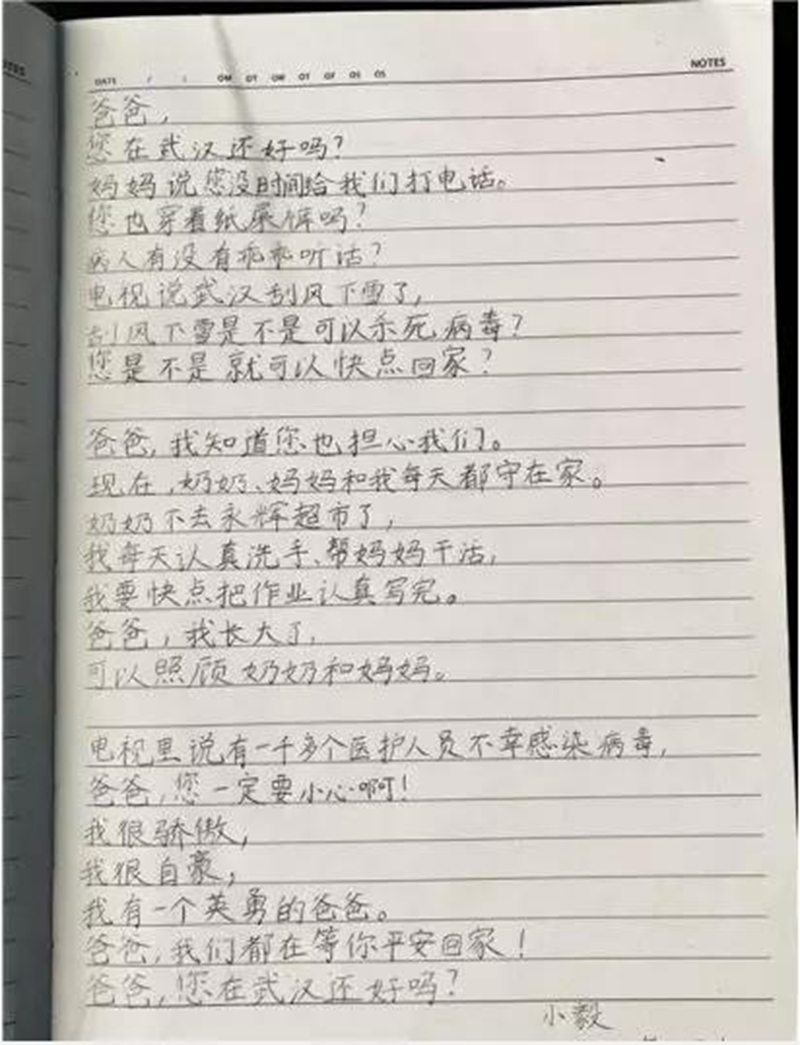 DATE / / OM OT OW OT OF OS OS
NOTES
爸爸，
您在武汉还好吗？
妈妈说您没时间给我们打电话。
您也穿着纸尿裤吗？
病人有没有乖乖听话？
电视说武汉刮风下雪了，
刮风下雪是不是可以杀死病毒？
您是不是就可以快点回家？
爸爸，我知道您也担心我们。
现在，奶奶、妈妈和我每天都守在家。
奶奶不去永辉超市了，
我每天认真洗手、帮妈妈干活，
我要快点把作业认真写完。
爸爸，我长大了，
可以照顾奶奶和妈妈。
电视里说有一千多个医护人员不幸感染病毒，
爸爸，您一定要小心啊！
我很骄傲，
我很自豪，
我有一个英勇的爸爸。
爸爸，我们都在等你平安回家！
爸爸，您在武汉还好吗？
小毅